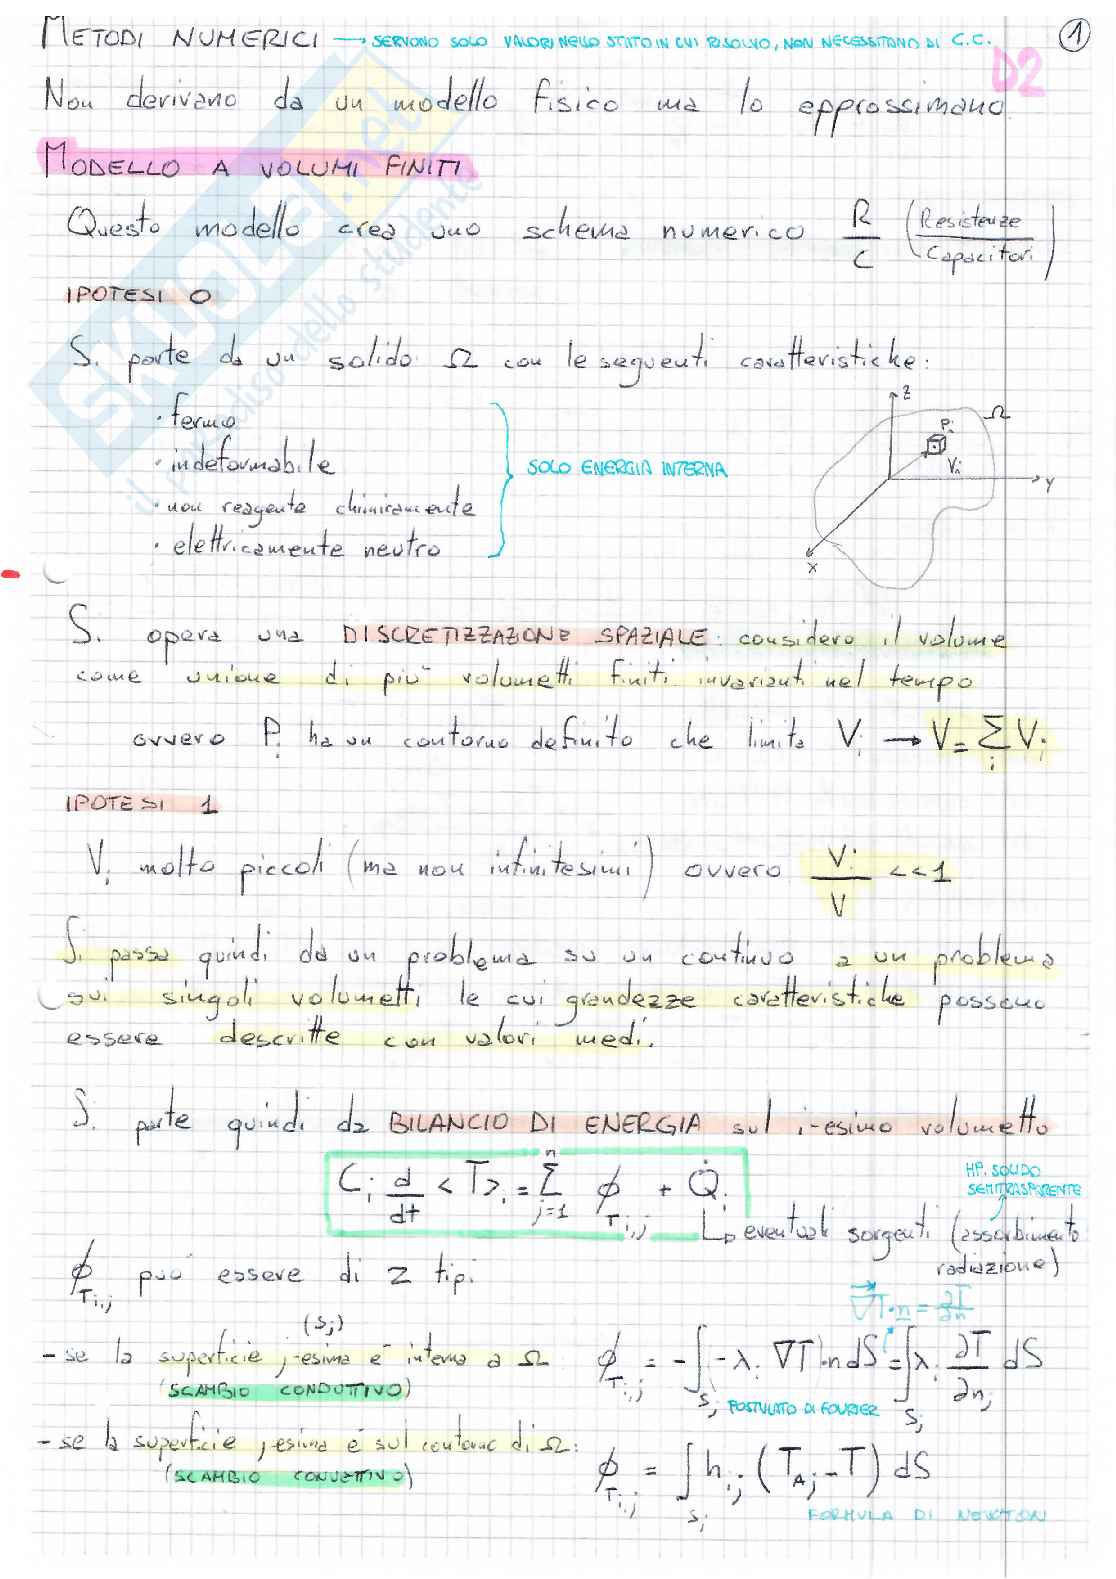 METODI NUMERICI → SERVONO SOLO VALORI NELLO STATO IN CUI RISOLVO, NON NECESSITANO DI C.C. 1
D2
Non derivano da un modello fisico ma lo approssimano.
MODELLO A VOLUMI FINITI
Questo modello crea uno schema numerico R/C (Resistenze/Capacitori)
IPOTESI 0
Si parte da un solido Ω con le seguenti caratteristiche:
· fermo
· indeformabile
· non reagente chimicamente
· elettricamente neutro
SOLO ENERGIA INTERNA
z
Ω
Pi
Vi
y
x
Si opera una DISCRETIZZAZIONE SPAZIALE: considero il volume
come unione di più volumetti finiti invarianti nel tempo
ovvero Pi ha un contorno definito che limita Vi → V = Σi Vi
IPOTESI 1
Vi molto piccoli (ma non infinitesimi) ovvero Vi/V <<1
Si passa quindi da un problema su un continuo a un problema
sui singoli volumetti le cui grandezze caratteristiche possono
essere descritte con valori medi.
Si parte quindi da BILANCIO DI ENERGIA sul i-esimo volumetto
Ci d/dt <T>i = Σ j=1 n ϕTi,j + Q̇i
HP. SOLIDO
SEMITRASPARENTE
eventuali sorgenti (assorbimento
radiazione)
ϕTi,j può essere di 2 tipi
∇T·n = ∂T/∂n
(Sj)
- se la superficie j-esima è interna a Ω ϕTi,j = -∫Sj (-λi ∇T)·n dS = ∫Sj λi ∂T/∂nj dS
(SCAMBIO CONDUTTIVO)
POSTULATO DI FOURIER
- se la superficie j-esima è sul contorno di Ω: ϕTi,j = ∫Sj hi,j (TAj - T) dS
(SCAMBIO CONVETTIVO)
FORMULA DI NEWTON
SKUOLA.net
il paradiso dello studente